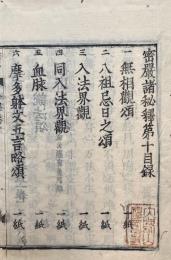 密嚴諸秘釋第十目錄
一 無相觀頌 一紙
二 八祖忌日之頌 一紙
三 入法界觀 一紙
四 同入法界觀 一紙
五 血脉 一紙
六 摩多躰文五言略頌 一紙